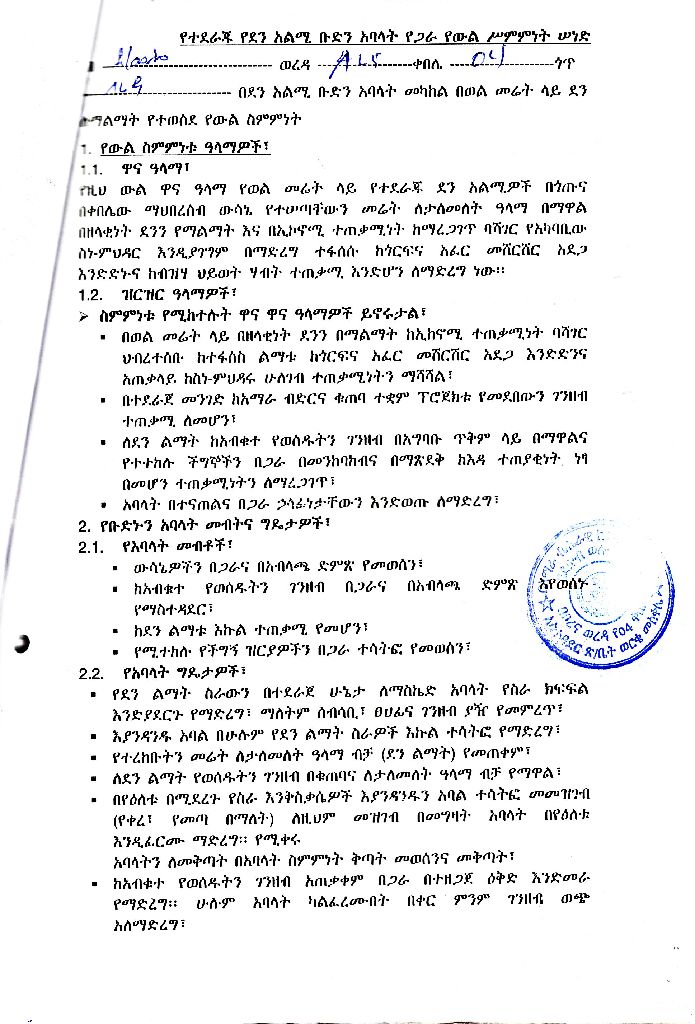 የተደራጁ የደን አልሚ ቡድን አባላት የጋራ የውል ሥምምነት ሠነድ
---------------------------- ወረዳ ---------------ቀበሌ --- 04 ------------ጎጥ
---------------------------- በደን አልሚ ቡድን አባላት መካከል በወል መሬት ላይ ደን
ለማልማት የተወሰደ የውል ስምምነት
1. የውል ስምምነቱ ዓላማዎች፣
1.1. ዋና ዓላማ፣
የዚህ ውል ዋና ዓላማ የወል መሬት ላይ የተደራጁ ደን አልሚዎች በጎጡና
በቀበሌው ማህበረሰብ ውሳኔ የተሠጣቸውን መሬት ለታለመለት ዓላማ በማዋል
በዘላቂነት ደንን የማልማት እና በኢኮኖሚ ተጠቃሚነት ከማረጋገጥ ባሻገር የአካባቢው
ስነ-ምህዳር እንዲያገግም በማድረግ ተፋሰሱ ከጎርፍና አፈር መሸርሸር አደጋ
እንድድኑና ከብዝሃ ህይወት ሃብት ተጠቃሚ እንድሆን ለማድረግ ነው።
1.2. ዝርዝር ዓላማዎች፣
➢ ስምምነቱ የሚከተሉት ዋና ዋና ዓላማዎች ይኖሩታል፣
▪ በወል መሬት ላይ በዘላቂነት ደንን በማልማት ከኢኮኖሚ ተጠቃሚነት ባሻገር
ህብረተሰቡ ከተፋሰስ ልማቱ ከጎርፍና አፈር መሸርሸር አደጋ እንድድንና
አጠቃላይ ከስነ-ምህዳሩ ሁለገብ ተጠቃሚነትን ማሻሻል፣
▪ በተደራጀ መንገድ ከአማራ ብድርና ቁጠባ ተቋም ፕሮጀክቱ የመደበውን ገንዘብ
ተጠቃሚ ለመሆን፣
▪ ለደን ልማት ከአብቁተ የወሰዱትን ገንዘብ በአግባቡ ጥቅም ላይ በማዋልና
የተተከሉ ችግኞችን በጋራ በመንከባከብና በማጽደቅ ከእዳ ተጠያቂነት ነፃ
በመሆን ተጠቃሚነትን ለማረጋገጥ፣
▪ አባላት በተናጠልና በጋራ ኃላፊነታቸውን እንድወጡ ለማድረግ፣
2. የቡድኑን አባላት መብትና ግዴታዎች፣
2.1. የአባላት መብቶች፣
▪ ውሳኔዎችን በጋራና በአብላጫ ድምጽ የመወሰን፣
▪ ከአብቁተ የወሰዱትን ገንዘብ በጋራና በአብላጫ ድምጽ እየወሰኑ
የማስተዳደር፣
▪ ከደን ልማቱ እኩል ተጠቃሚ የመሆን፣
▪ የሚተከሉ የችግኝ ዝርያዎችን በጋራ ተሳትፎ የመወሰን፣
2.2. የአባላት ግዴታዎች፣
▪ የደን ልማት ስራውን በተደራጀ ሁኔታ ለማስኬድ አባላት የስራ ክፍፍል
እንድያደርጉ የማድረግ፣ ማለትም ሰብሳቢ፣ ፀሀፊና ገንዘብ ያዥ የመምረጥ፣
▪ እያንዳንዱ አባል በሁሉም የደን ልማት ስራዎች እኩል ተሳትፎ የማድረግ፣
▪ የተረከቡትን መሬት ለታለመለት ዓላማ ብቻ (ደን ልማት) የመጠቀም፣
▪ ለደን ልማት የወሰዱትን ገንዘብ በቁጠባና ለታለመለት ዓላማ ብቻ የማዋል፣
▪ በየዕለቱ በሚደረጉ የስራ እንቅስቃሴዎች እያንዳንዱን አባል ተሳትፎ መመዝገብ
(የቀረ፣ የመጣ በማለት) ለዚህም መዝገብ በመግዛት አባላት በየዕለቱ
እንዲፈርሙ ማድረግ። የሚቀሩ
አባላትን ለመቅጣት በአባላት ስምምነት ቅጣት መወሰንና መቅጣት፣
▪ ከአብቁተ የወሰዱትን ገንዘብ አጠቃቀም በጋራ በተዘጋጀ ዕቅድ እንድመራ
የማድረግ። ሁሉም አባላት ካልፈረሙበት በቀር ምንም ገንዘብ ወጭ
አለማድረግ፣